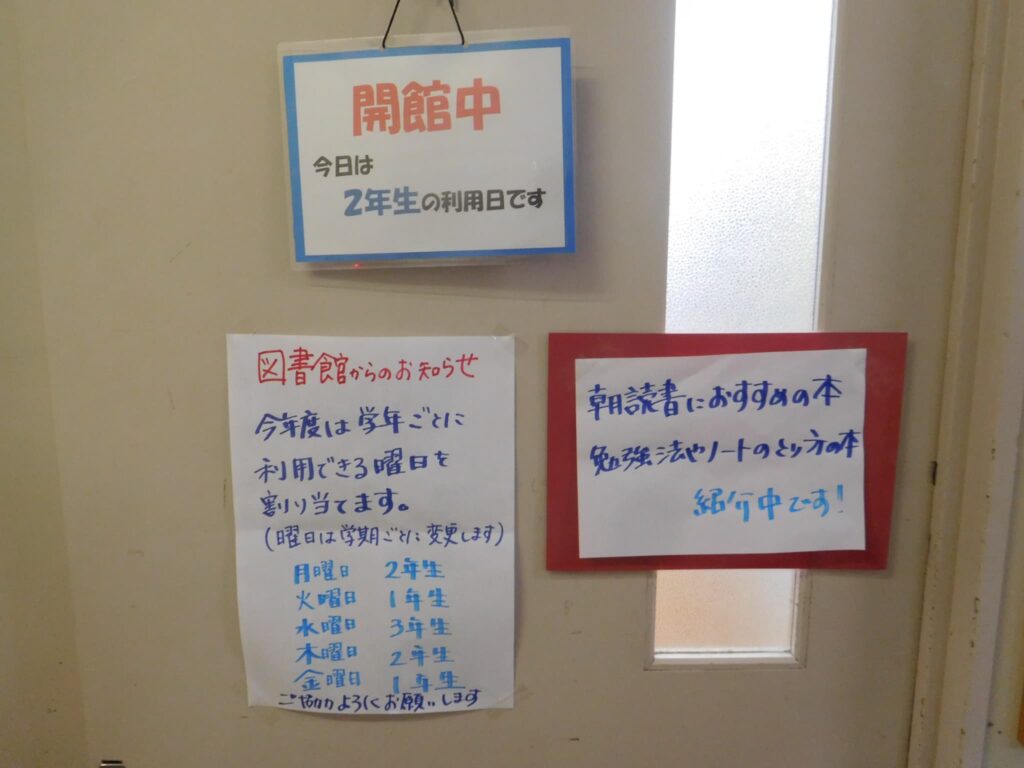 開館中
今日は
2年生の利用日です
図書館からのお知らせ
今年度は学年ごとに
利用できる曜日を
割り当てます。
(曜日は学期ごとに変更します)
月曜日 2年生
火曜日 1年生
水曜日 3年生
木曜日 2年生
金曜日 1年生
ご協力よろしくお願いします
朝読書におすすめの本
勉強法やノートのとり方の本
紹介中です!